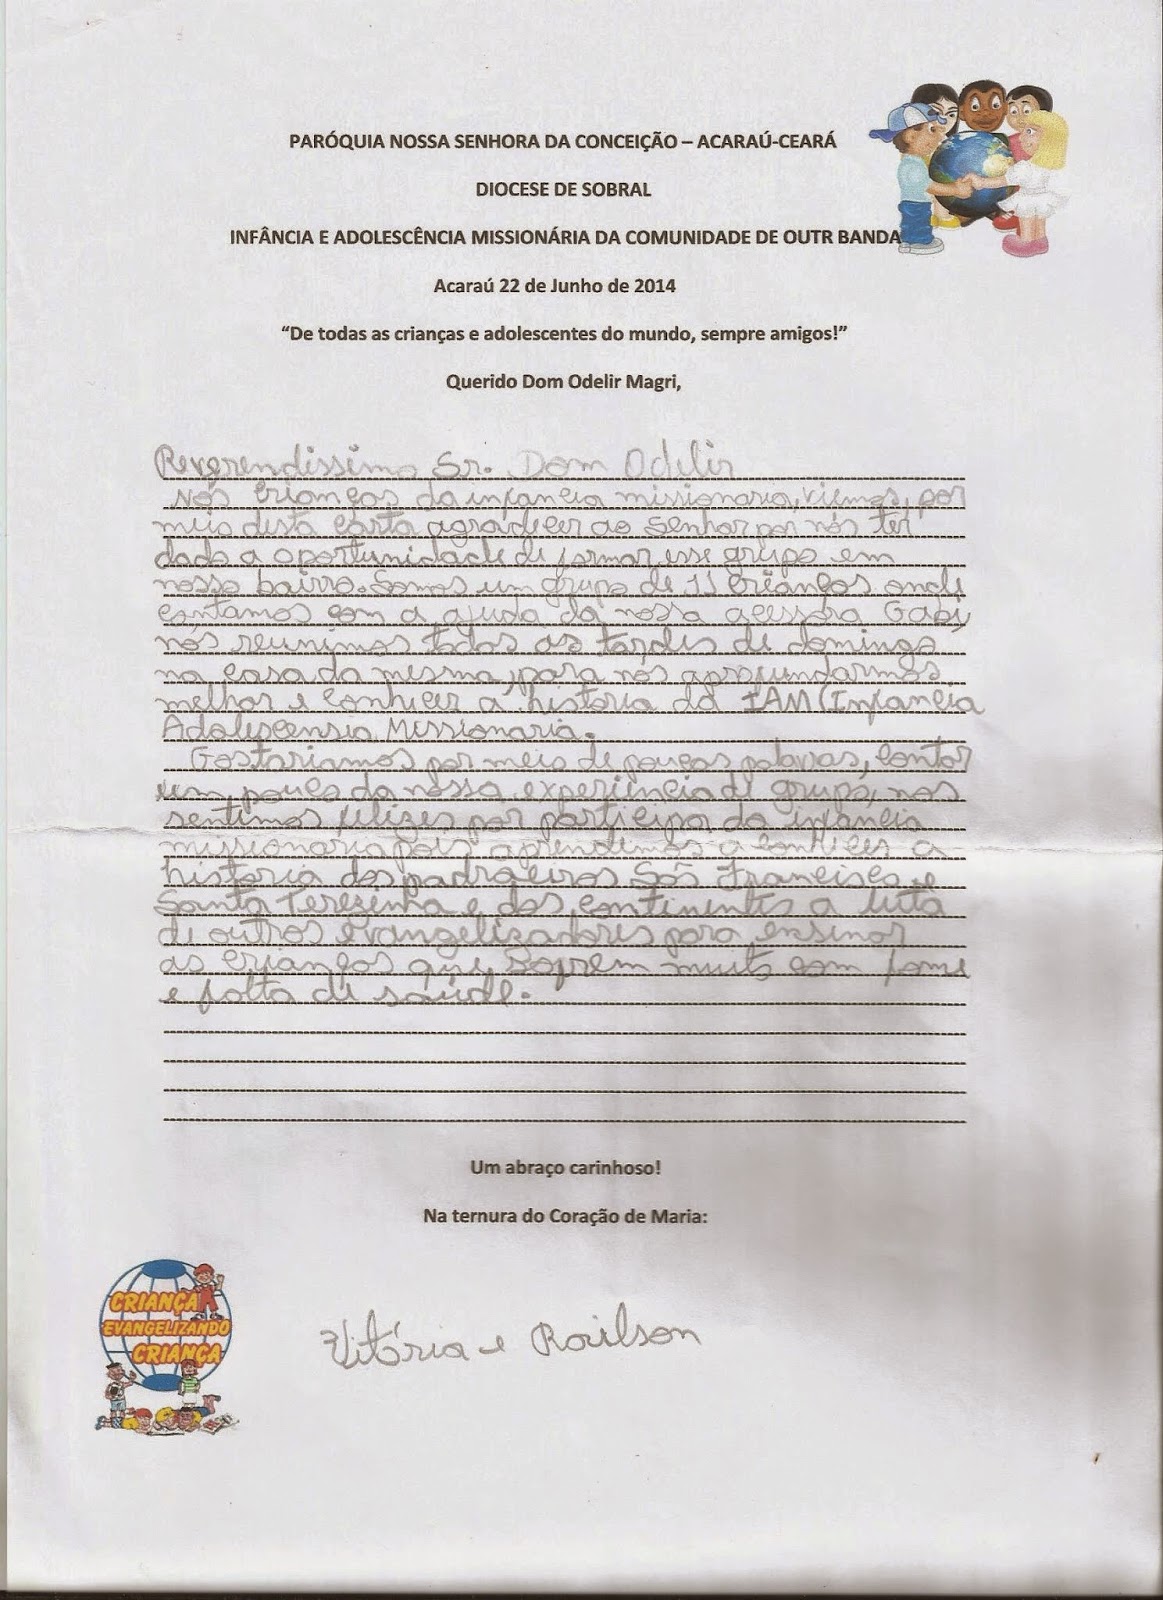 PARÓQUIA NOSSA SENHORA DA CONCEIÇÃO – ACARAÚ-CEARÁ
DIOCESE DE SOBRAL
INFÂNCIA E ADOLESCÊNCIA MISSIONÁRIA DA COMUNIDADE DE OUTR BANDA
Acaraú 22 de Junho de 2014
“De todas as crianças e adolescentes do mundo, sempre amigos!”
Querido Dom Odelir Magri,
Reverendissimo Sr. Dom Odelir
Nós crianças da infancia missionaria, viemos, por
meio desta carta agradecer ao Senhor por nós ter
dado a oportunidade de formar esse grupo em
nosso bairro. Somos um grupo de 11 crianças onde
contamos com a ajuda da nossa acessora Gabi,
nós reunimos todos as tardes de domingo
na casa da mesma, para nós aprofundarmos
melhor e conhecer a história da IAM (Infancia
Adolescensia Missionaria.
Gostariamos por meio de poucas palavras, contar
um pouco da nossa experiência de grupo, nos
sentimos felizes por participa da infancia
missionaria pois aprendemos a conhecer a
historia dos padroeiros São Francisco e
Santa Terezinha e dos continentes a luta
de outros evangelizadores para ensinar
as crianças que sofrem muito com fome
e falta de saúde.
Um abraço carinhoso!
Na ternura do Coração de Maria:
CRIANÇA
EVANGELIZANDO
CRIANÇA
Vitória e Railson